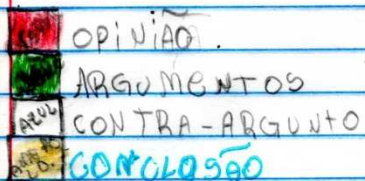 OPINIÃO.
ARGUMENTOS
AZUL CONTRA-ARGUNTO
CONCLOSÃO